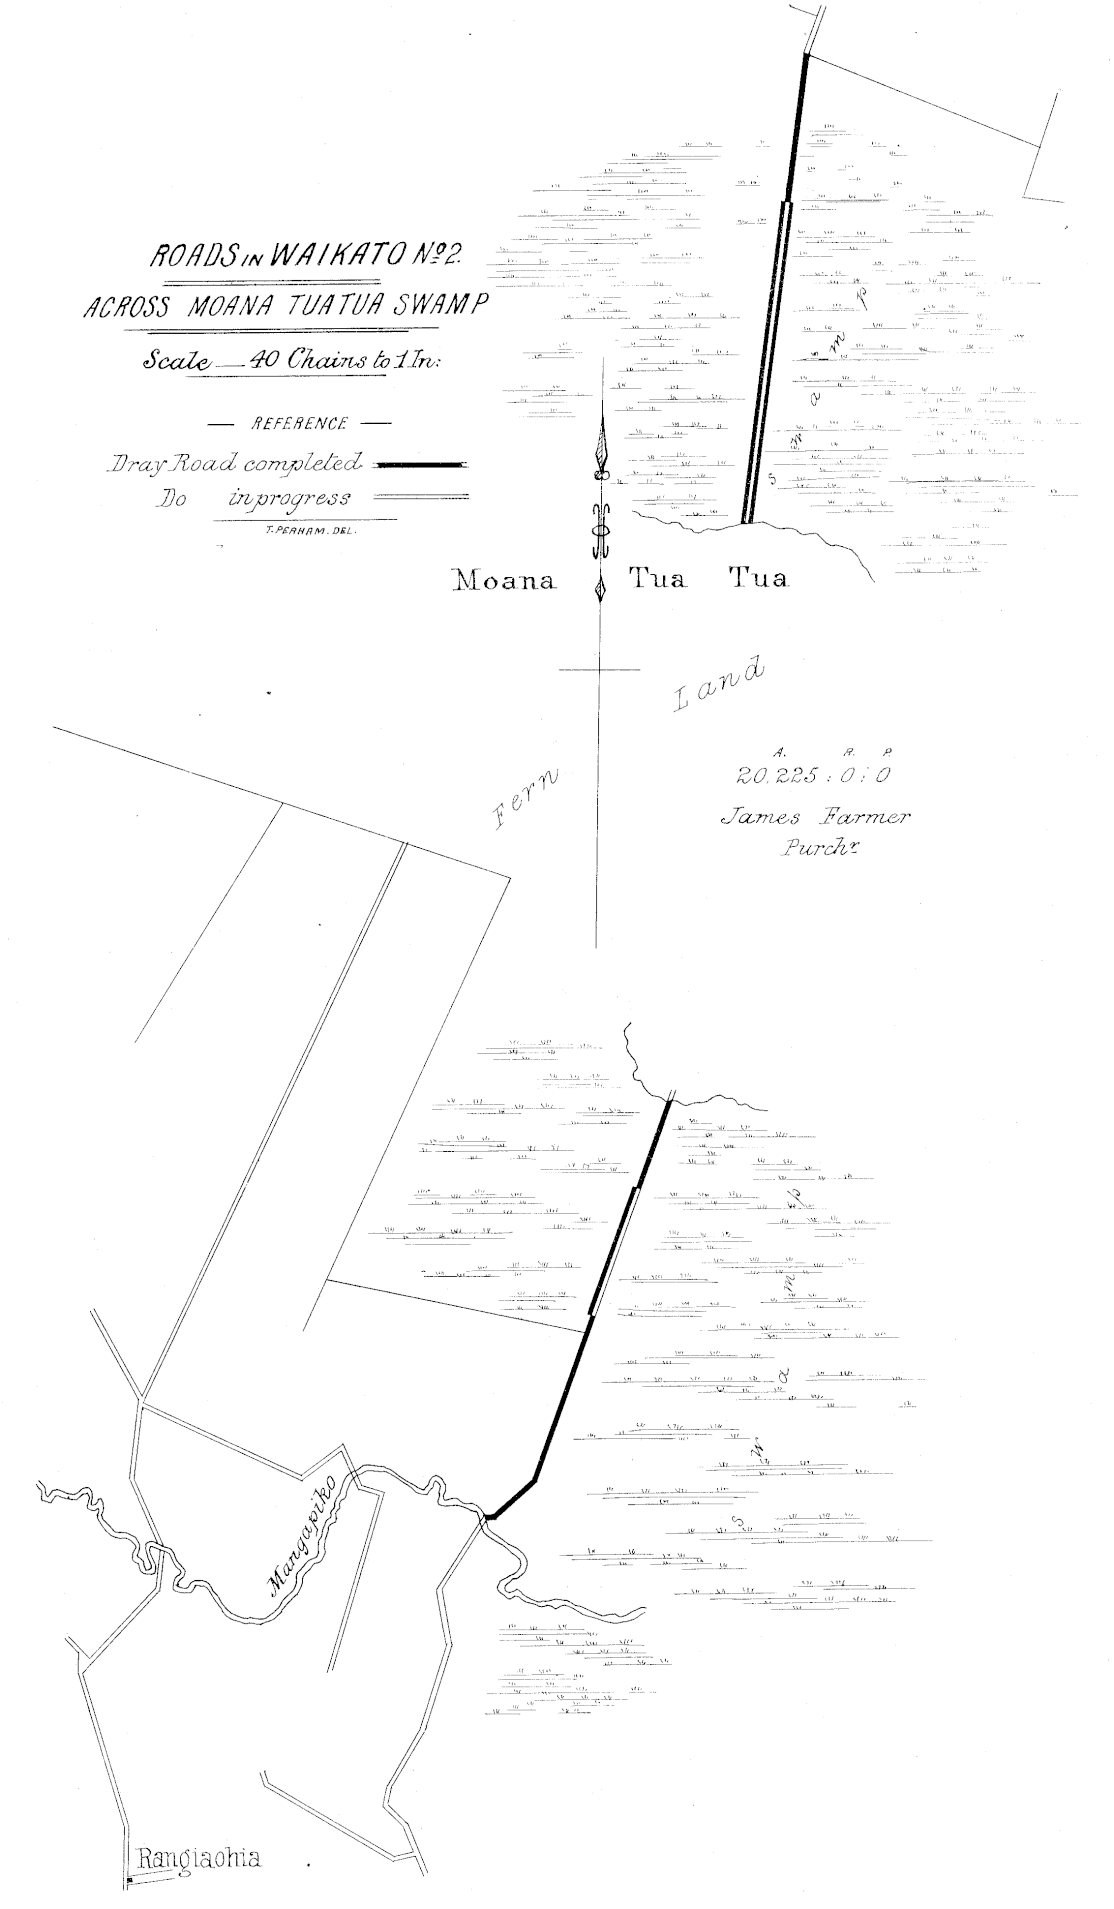 ROADS IN WAIKATO Nº 2.
ACROSS MOANA TUATUA SWAMP
Scale — 40 Chains to 1 In:
— REFERENCE —
Dray Road completed
Do in progress
T. PERHAM. DEL.
Swamp
Moana Tua Tua
Fern Land
A. R. P.
20,225 : 0 : 0
James Farmer
Purchr
Swamp
Mangapiko
Rangiaohia